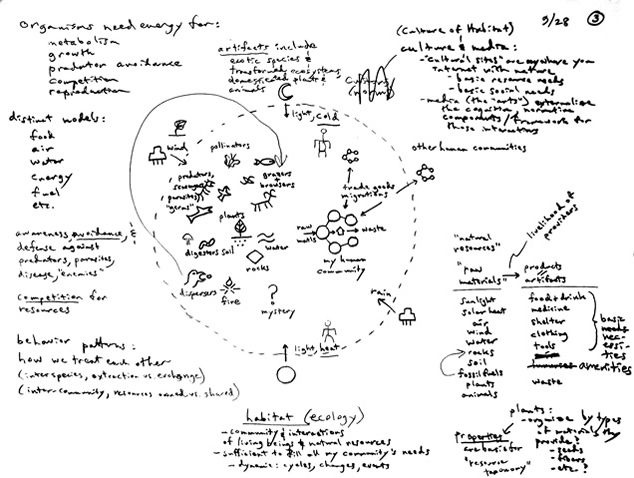 organisms need energy for:
metabolism
growth
predator avoidance
competition
reproduction
artifacts include
exotic species &
transformed ecosystems
domesticated plants &
animals
(Culture of Habitat)
culture & media:
- "cultural sites" are anywhere you
interact with nature
- basic resource needs
- basic social needs
- media (the "arts") externalize
the cognitive, normative
components/framework for
those interactions
9/28
3
distinct models:
food
air
water
energy
fuel
etc.
awareness, avoidance, &
defense against
predators, parasites,
disease, "enemies"
competition for
resources
behavior patterns:
how we treat each other
(interspecies, extraction vs. exchange)
(inter-community, resources owned vs. shared)
light, cold
wind
pollinators
predators,
scavengers,
parasites,
"germs"
grazers
+
browsers
plants
digesters
soil
water
rocks
dispersers
fire
?
mystery
trade goods
migrations
raw
matls
waste
my human
community
other human communities
rain
light, heat
habitat (ecology)
- community & interactions
of living beings & natural resources
- sufficient to fill all my community's needs
- dynamic: cycles, changes, events
livelihood of
"natural
resources"
"raw
materials"
products
artifacts
sunlight
solar heat
air
wind
water
rocks
soil
fossil fuels
plants
animals
food & drink
medicine
shelter
clothing
tools
amenities
waste
basic
needs
nec-
essi-
ties
plants:
- organize by types
of materials they
provide?
- seeds
- fibers
- etc?
properties
are basis for
"resource
taxonomy"